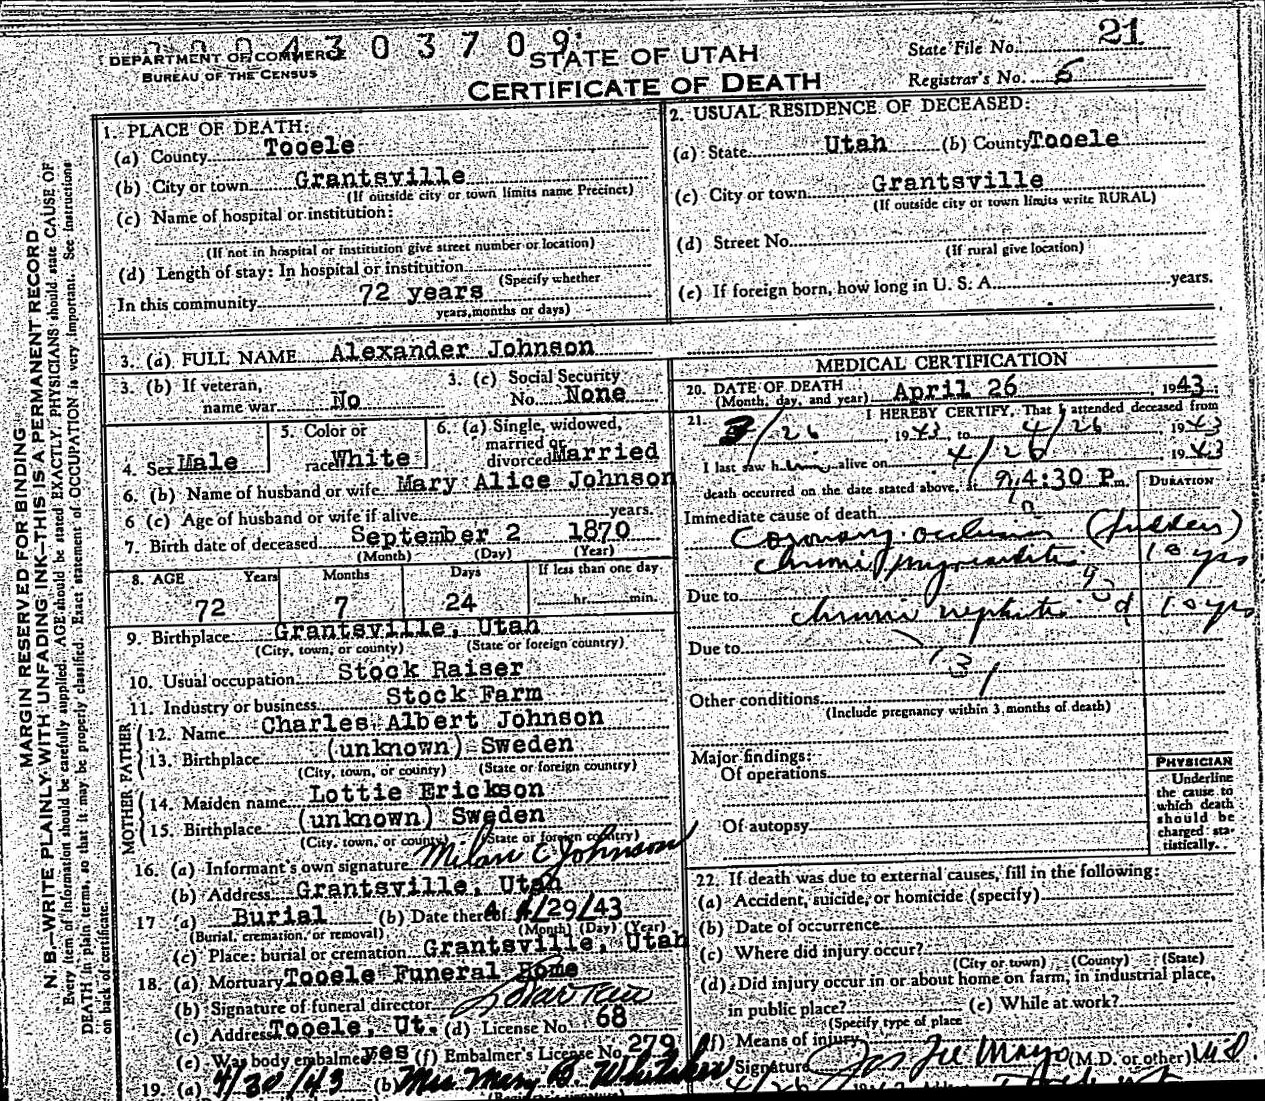 0004303709
DEPARTMENT OF COMMERCE
BUREAU OF THE CENSUS
STATE OF UTAH
CERTIFICATE OF DEATH
State File No. 21
Registrar's No. 6
MARGIN RESERVED FOR BINDING
N. B.—WRITE PLAINLY WITH UNFADING INK—THIS IS A PERMANENT RECORD
Every item of information should be carefully supplied. AGE should be stated EXACTLY. PHYSICIANS should state CAUSE OF
DEATH in plain terms, so that it may be properly classified. Exact statement of OCCUPATION is very important. See instructions
on back of certificate.
1. PLACE OF DEATH:
(a) County Tooele
(b) City or town Grantsville
(If outside city or town limits name Precinct)
(c) Name of hospital or institution:
(If not in hospital or institution give street number or location)
(d) Length of stay: In hospital or institution
(Specify whether
In this community 72 years
years, months or days)
2. USUAL RESIDENCE OF DECEASED:
(a) State Utah (b) County Tooele
(c) City or town Grantsville
(If outside city or town limits write RURAL)
(d) Street No.
(If rural give location)
(e) If foreign born, how long in U. S. A. years.
3. (a) FULL NAME Alexander Johnson
3. (b) If veteran,
name war No
3. (c) Social Security
No. None
4. Sex Male
5. Color or
race White
6. (a) Single, widowed,
married or
divorced Married
6. (b) Name of husband or wife Mary Alice Johnson
6 (c) Age of husband or wife if alive years.
7. Birth date of deceased September 2 1870
(Month) (Day) (Year)
8. AGE Years Months Days If less than one day
72 7 24 hr. min.
9. Birthplace Grantsville, Utah
(City, town, or county) (State or foreign country)
10. Usual occupation Stock Raiser
11. Industry or business Stock Farm
FATHER
12. Name Charles Albert Johnson
13. Birthplace (unknown) Sweden
(City, town, or county) (State or foreign country)
MOTHER
14. Maiden name Lottie Erickson
15. Birthplace (unknown) Sweden
(City, town, or county) (State or foreign country)
16. (a) Informant's own signature Milan C Johnson
(b) Address Grantsville, Utah
17 (a) Burial (b) Date thereof 4/29/43
(Burial, cremation, or removal) (Month) (Day) (Year)
(c) Place: burial or cremation Grantsville, Utah
18. (a) Mortuary Tooele Funeral Home
(b) Signature of funeral director
(c) Address Tooele, Ut. (d) License No. 68
(e) Was body embalmed yes (f) Embalmer's License No. 279
19. (a) 4/30/43 (b) Mrs Mary B. Whitaker
MEDICAL CERTIFICATION
20. DATE OF DEATH
(Month, day, and year) April 26, 1943
21. I HEREBY CERTIFY, That I attended deceased from
3/26, 1943, to 4/26 1943
I last saw him alive on 4/26 1943
death occurred on the date stated above, at 4:30 P m.
DURATION
Immediate cause of death
Coronary occlusion (sudden)
chronic myocarditis 10 yrs
Due to
chronic nephritis 10 yrs
Due to
Other conditions
(Include pregnancy within 3 months of death)
Major findings:
Of operations
Of autopsy
PHYSICIAN
Underline
the cause to
which death
should be
charged sta-
tistically.
22. If death was due to external causes, fill in the following:
(a) Accident, suicide, or homicide (specify)
(b) Date of occurrence
(c) Where did injury occur?
(City or town) (County) (State)
(d) Did injury occur in or about home on farm, in industrial place,
in public place? (e) While at work?
(Specify type of place
(f) Means of injury
Signature Jos Lee Mayo (M.D. or other) MD